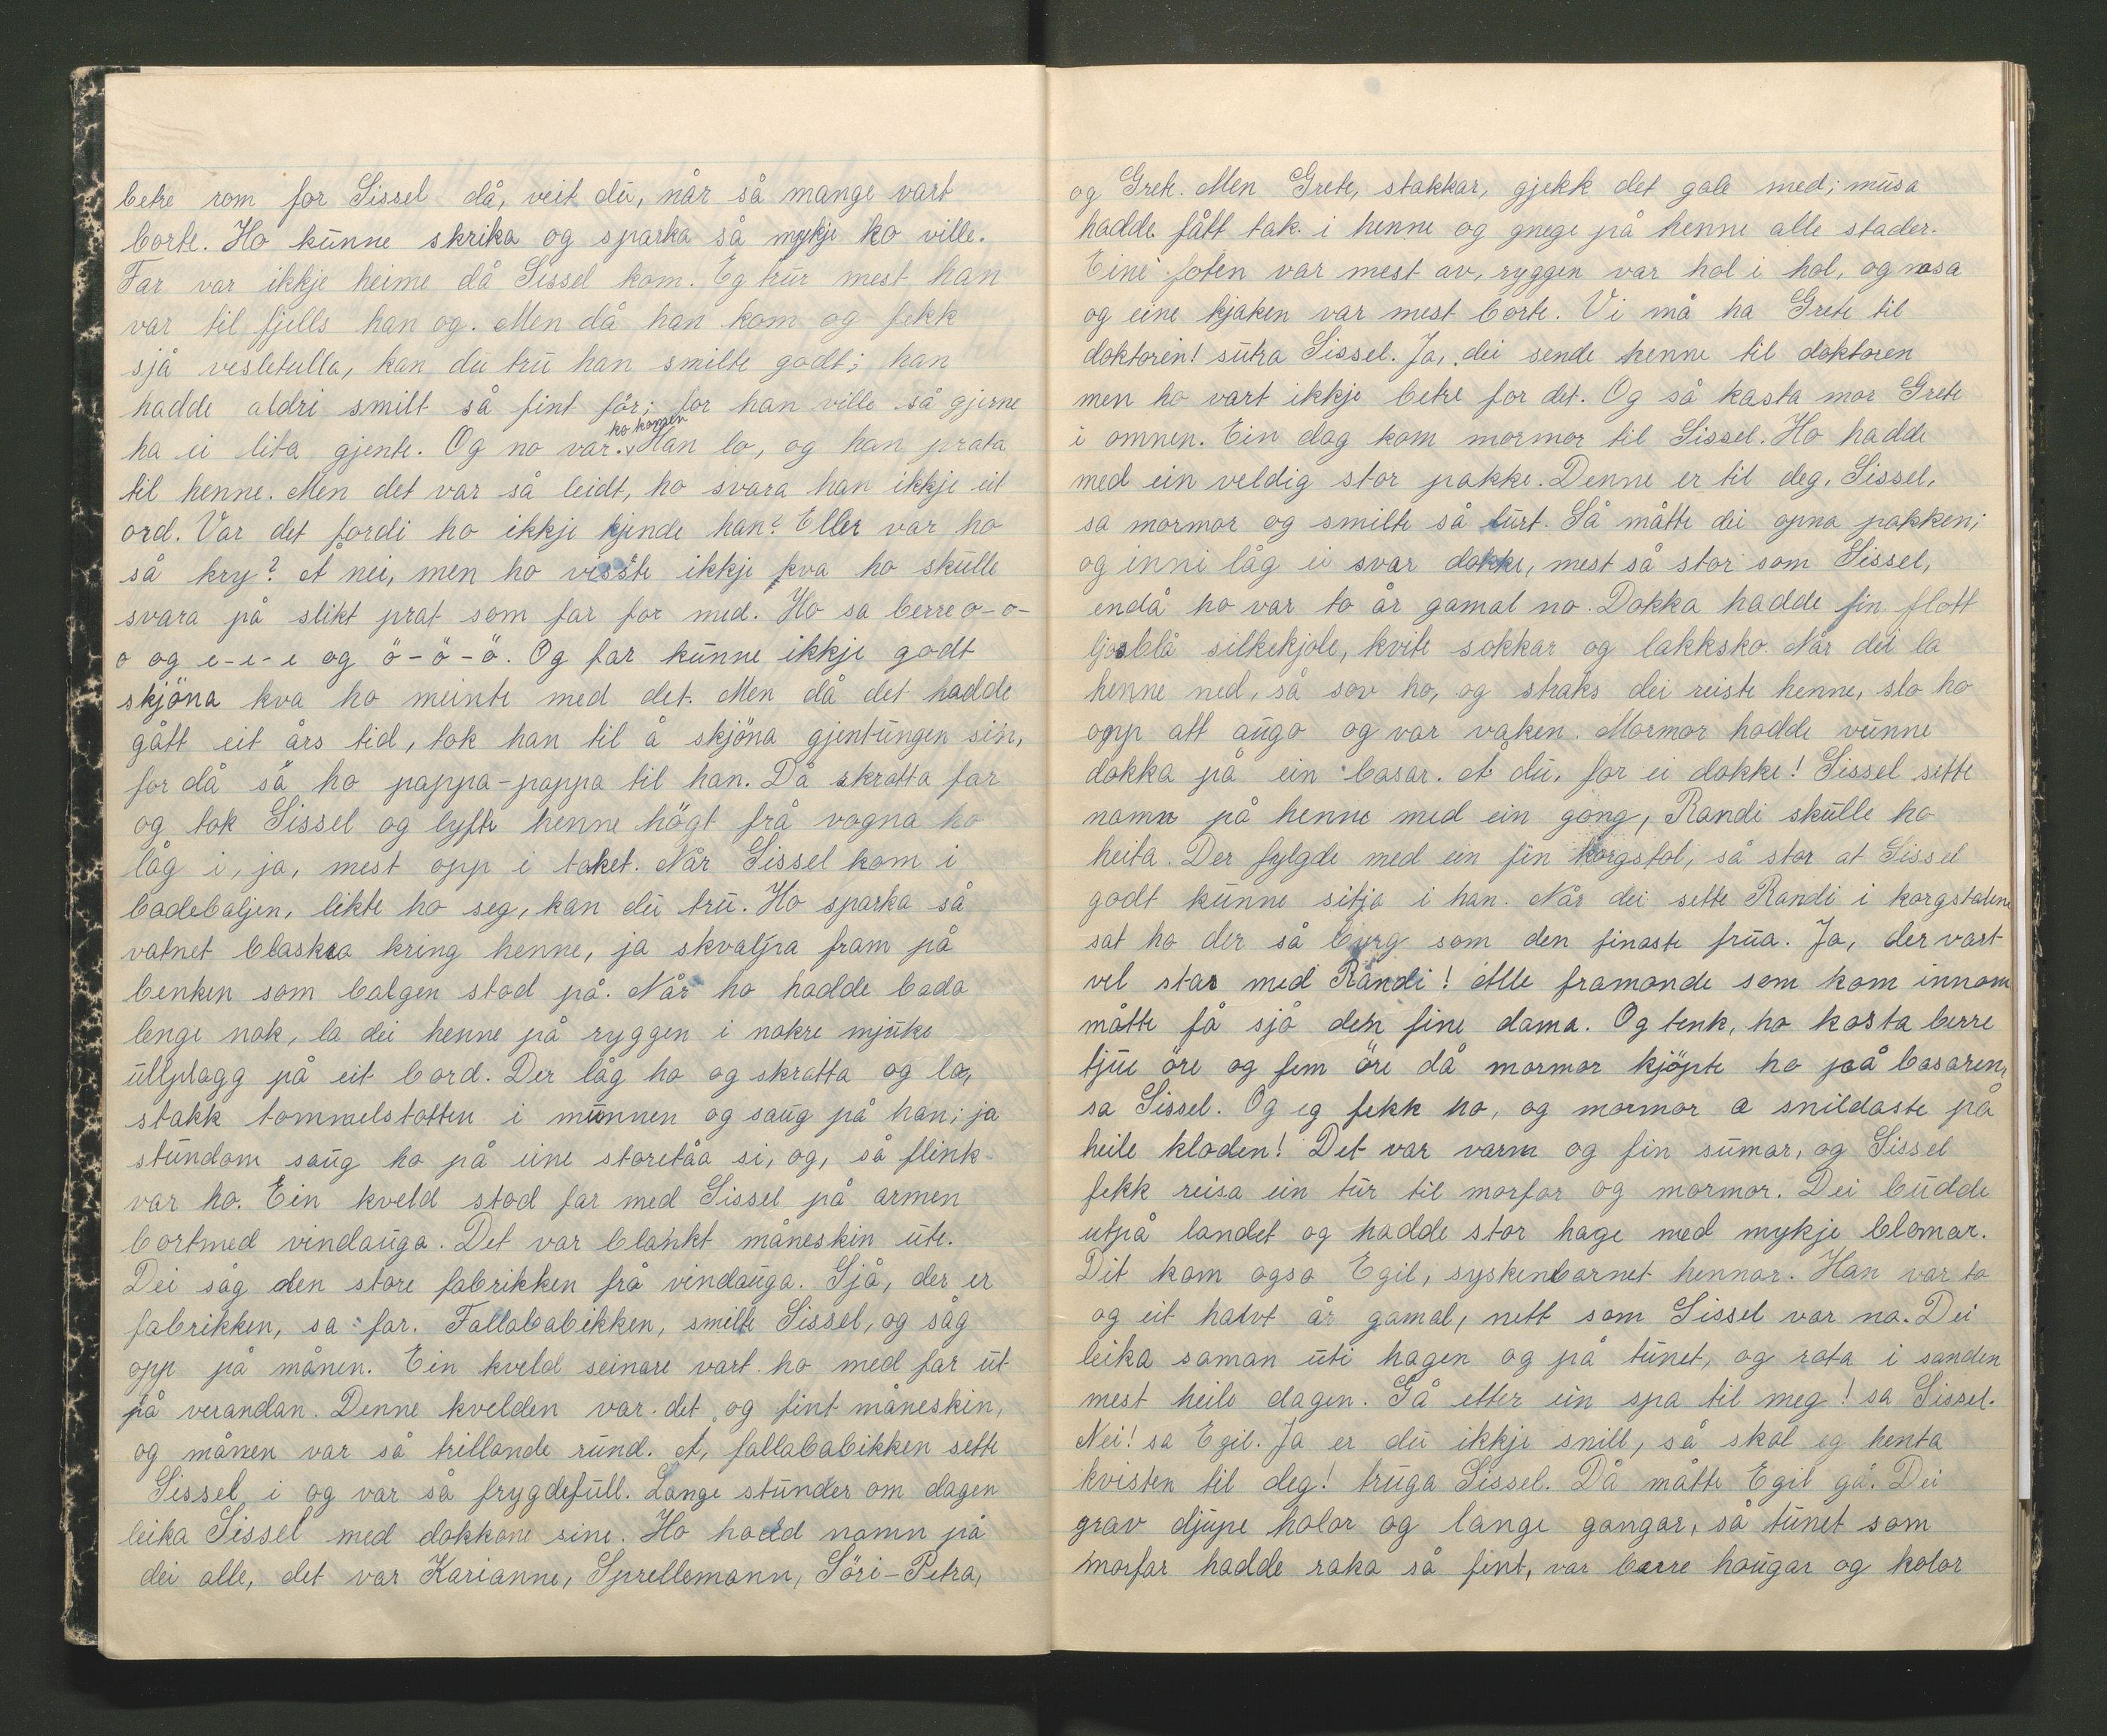 betre rom for Sissel då, veit du, når så mange vart
borte. Ho kunne skrika og sparka så mykje ho ville.
Far var ikkje heime då Sissel kom. Eg trur mest han
var til fjells han og. Men då han kom og fekk
sjå vesletulla, kan du tru han smilte godt; han
hadde aldri smilt så fint för; for han ville så gjerne
ha ei lita gjente. Og no var ho komen. Han lo, og han prata
til henne. Men det var så leidt, ho svara han ikkje eit
ord. Var det fordi ho ikkje kjende han? Eller var ho
så kry? Å nei, men ho visste ikkje kva ho skulle
svara på slikt prat som far for med. Ho sa berre o-o-
o og e-e-e og ö-ö-ö. Og far kunne ikkje godt
skjöna kva ho meinte med det. Men då det hadde
gått eit års tid, tok han til å skjöna gjentungen sin,
for då så ho pappa-pappa til han. Då skratta far
og tok Sissel og lyfte henne högt frå vogna ho
låg i, ja, mest opp i taket. Når Sissel kom i
badebaljen, likte ho seg, kan du tru. Ho sparka så
vatnet blaska kring henne, ja skvalpa fram på
benken som balgen stod på. Når ho hadde bada
lenge nok, la dei henne på ryggen i nokre mjuke
ullplagg på eit bord. Der låg ho og skratta og lo,
stakk tommelstotten i munnen og saug på han; ja
stundom saug ho på eine storetåa si, og, så flink
var ho. Ein kveld stod far med Sissel på armen
bortmed vindauga. Det var blankt måneskin ute.
Dei såg den store fabrikken frå vindauga. Sjå, der er
fabrikken, sa far. Fallababikken, smilte Sissel, og såg
opp på månen. Ein kveld seinare vart ho med far ut
på verandan. Denne kvelden var det og fint måneskin,
og månen var så trillande rund. Å, fallababikken sette
Sissel i og var så frygdefull. Lange stunder om dagen
leika Sissel med dokkone sine. Ho hadd namn på
dei alle, det var Karianne, Sprellemann, Söri-Petra,
og Grete. Men Grete, stakkar, gjekk det gale med; musa
hadde fått tak i henne og gnege på henne alle stader.
Eine foten var mest av, ryggen var hol i hol, og nosa
og eine kjaken var mest borte. Vi må ha Grete til
doktoren! sutra Sissel. Ja, dei sende henne til doktoren
men ho vart ikkje betre for det. Og så kasta mor Grete
i omnen. Ein dag kom mormor til Sissel. Ho hadde
med ein veldig stor pakke. Denne er til deg, Sissel,
sa mormor og smilte så lurt. Så måtte dei opna pakken;
og inni låg ei svær dokke, mest så stor som Sissel,
endå ho var to år gamal no. Dokka hadde fin flott
ljosblå silkekjole, kvite sokkar og lakksko. Når dei la
henne ned, så sov ho, og straks dei reiste henne, slo ho
opp att augo og var vaken. Mormor hadde vunne
dokka på ein basar. Å du, for ei dokke! Sissel sette
namn på henne med ein gong, Randi skulle ho
heita. Der fylgde med ein fin korgstol, så stor at Sissel
godt kunne sitja i han. Når dei sette Randi i korgstolen
sat ho der så byrg som den finaste frua. Ja, der vart
vel stas med Randi! Alle framande som kom innom
måtte få sjå den fine dama. Og tenk, ho kosta berre
tjue öre og fem öre då mormor kjöpte ho på basaren,
sa Sissel. Og eg fekk ho, og mormor æ snildaste på
heile kloden! Det var varm og fin sumar, og Sissel
fekk reisa ein tur til morfar og mormor. Dei budde
utpå landet og hadde stor hage med mykje blomar.
Dit kom ogso Egil, syskenbarnet hennar. Han var to
og eit halvt år gamal, nett som Sissel var no. Dei
leika saman uti hagen og på tunet, og rota i sanden
mest heile dagen. Gå etter ein spa til meg! sa Sissel.
Nei! sa Egil. Ja er du ikkje snill, så skal eg henta
kvisten til deg! truga Sissel. Då måtte Egil gå. Dei
grav djupe holor og lange gangar, så tunet som
morfar hadde raka så fint, var berre haugar og holor